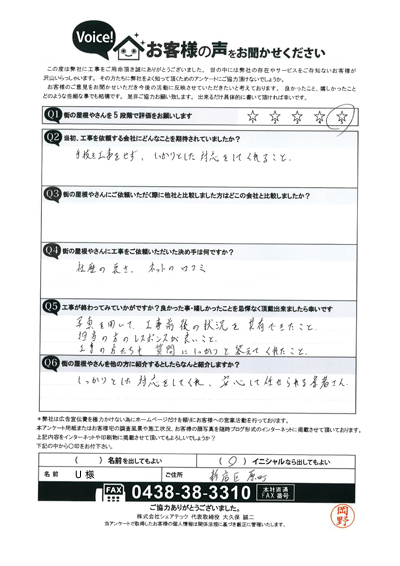 Voice!
お客様の声をお聞かせください
この度は弊社に工事をご用命頂き誠にありがとうございました。世の中には弊社の存在やサービスをご存知ないお客様が
沢山いらっしゃいます。その方たちに弊社をよく知って頂くためのアンケートにご協力頂けないでしょうか。
お客様のご意見をお聞かせいただき今後の活動に反映させていただきたいと考えております。良かったこと、嬉しかったこと
どのような些細な事でも結構です。是非ご協力お願い致します。出来るだけ具体的に書いて頂ければ幸いです。
Q1 街の屋根やさんを5段階で評価をお願いします ☆ ☆ ☆ ☆ ☆
Q2 当初、工事を依頼する会社にどんなことを期待されていましたか?
手抜き工事をせず、しっかりとした対応をしてくれること。
Q3 街の屋根やさんにご依頼いただく際に他社と比較しました方はどこの会社と比較しましたか?
Q4 街の屋根やさんに工事をご依頼いただいた決め手は何ですか?
社歴の長さ、ネットの口コミ
Q5 工事が終わってみていかがですか?良かった事・嬉しかったことを忌憚なく頂戴出来ましたら幸いです
写真を用いて、工事前後の状況を共有できたこと。
担当の方のレスポンスが良いこと。
工事の方たちも質問にしっかりと答えてくれたこと。
Q6 街の屋根やさんを他の方に紹介するとしたらなんと紹介しますか?
しっかりとした対応をしてくれ、安心して任せられる業者さん。
＊弊社は広告宣伝費を極力かけない為にホームページだけを頼りにお客様への営業活動を行っております。
本アンケート用紙またはお客様宅の調査風景や施工状況、お客様の顔写真を随時ブログ形式のインターネットに掲載させて頂いております。
上記内容をインターネットや印刷物に掲載させて頂いてもよろしいでしょうか?
下記の中から○印をお付下さい。
( ) 名前を出してもよい (○) イニシャルなら出してもよい
名前 U様 ご住所
FAX 0438-38-3310 本社直通 FAX番号
ご協力ありがとうございました。
株式会社シェアテック 代表取締役 大久保 誠二
当アンケートで取得したお客様の個人情報は関係法規に基づき厳正に管理いたします。
岡野